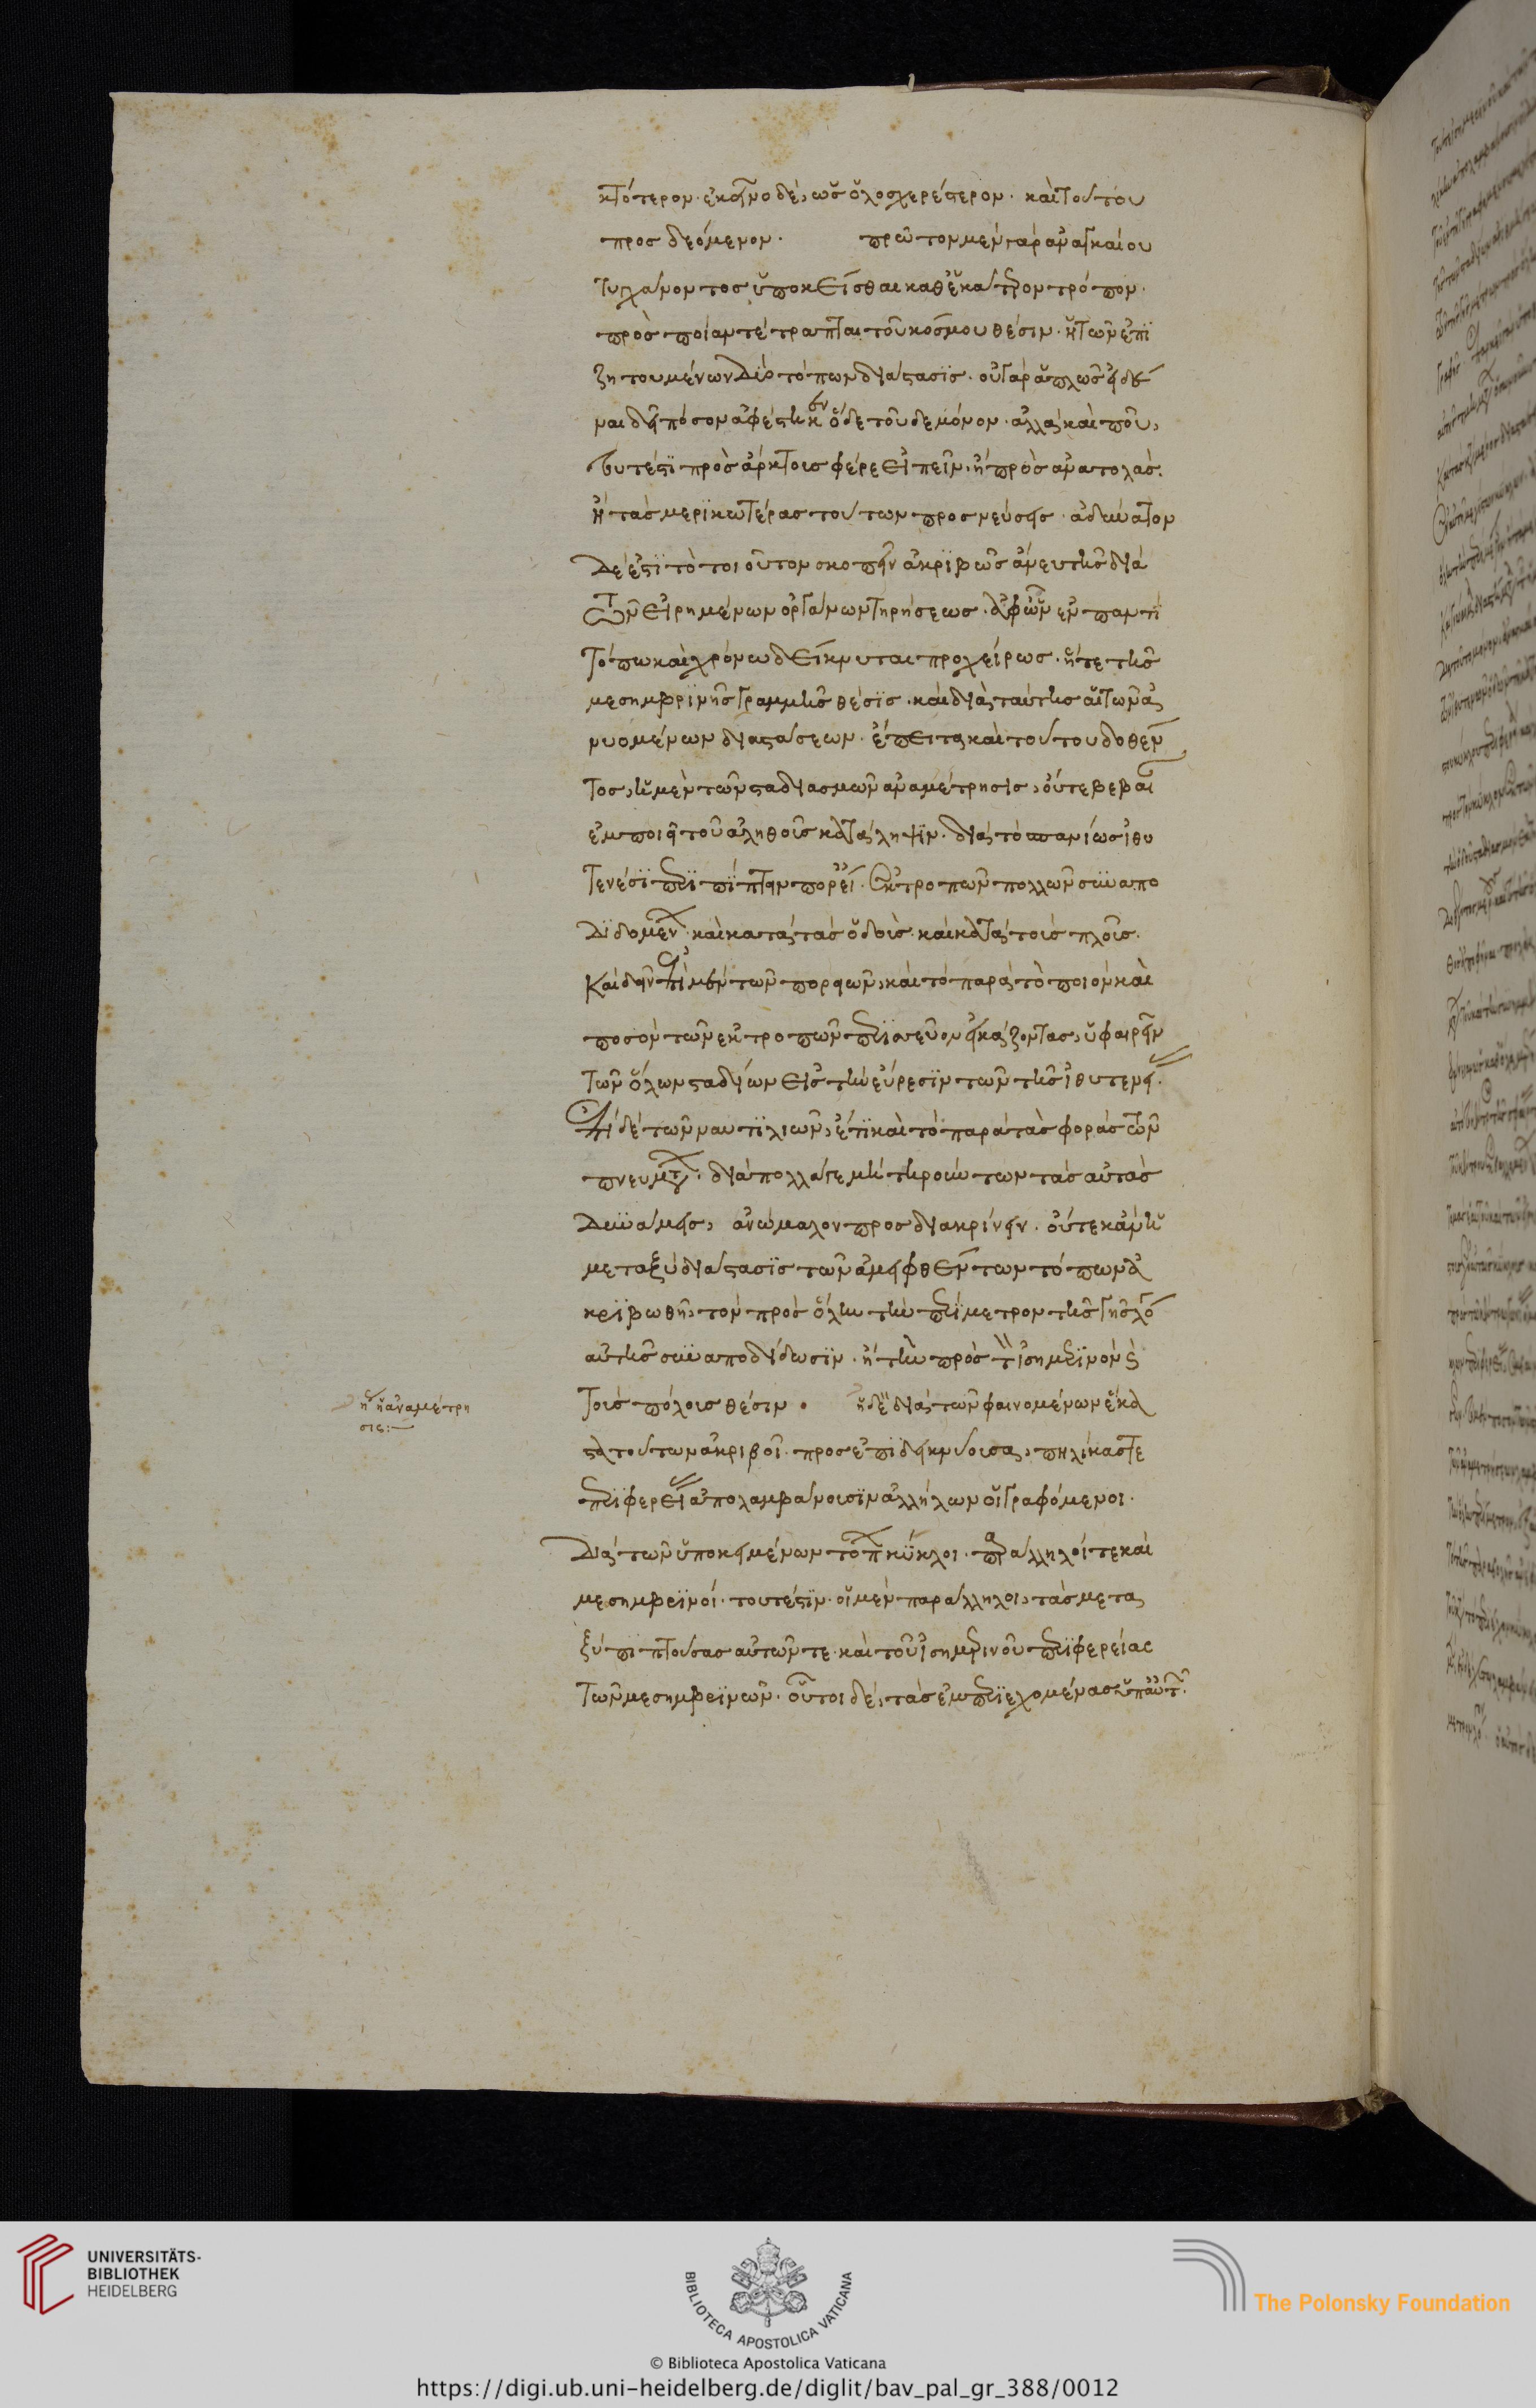 κτότερον. ἐκεῖνο δέ, ὡς ὁλοσχερέστερον. καὶ τούτου
προσδεόμενον. πρῶτον μὲν γὰρ ἀναγκαίου
τυγχάνοντος ὑποκεῖσθαι καθ' ἑκάτερον τρόπον.
πρὸς ποίαν τέτραπται τοῦ κόσμου θέσιν. ἡ τῶν ἐπϊ
ζητουμένων δύο τόπων διάστασϊς. οὐ γὰρ ἁπλῶς εἰδέ
ναι δεῖ πόσον ἀφέστηκεν ὅδε τοῦδε μόνον. ἀλλὰ καὶ ποῦ,
τουτέστϊ πρὸς ἄρκτοις φέρε εἰπεῖν, ἢ πρὸς ἀνατολάς.
ἢ τὰς μερϊκωτέρας τούτων προσνεύσεις. ἀδύνατον
δέ ἐστϊ τὸ τοιοῦτον σκοπεῖν ἀκρϊβῶς ἄνευ τῆς διὰ
τῶν εἰρημένων ὀργάνων τηρήσεως. ἀφ' ὧν ἐν παντὶ
τόπω καὶ χρόνω δείκνυται προχείρως. ἥ τε τῆς
μεσημβρϊνῆς γραμμῆς θέσϊς. καὶ διὰ ταύτης αἱ τῶν ἀ
νυομένων διαστάσεων. ἔπειτα καὶ τούτου δοθέν
τος, ἡ μὲν τῶν σταδιασμῶν ἀναμέτρησις, οὔτε βεβαί
ἐμποιεῖ τοῦ ἀληθοῦς κατάληψϊν. διὰ τὸ σπανίως ἰθυ
τενέσϊ περϊπίπτειν πορεί. ἐκτροπῶν πολλῶν συναπο
δϊδομένων. καὶ κατὰ τὰς ὁδοὺς. καὶ κατὰ τοὺς πλοῦς.
καὶ δεῖν ἐπὶ μὲν τῶν πορειῶν, καὶ τὸ παρὰ τὸ ποιὸν καὶ
ποσὸν τῶν ἐκτροπῶν περϊσσεῦον εἰκάζοντας, ὑφαιρεῖν
τῶν ὅλων σταδίων εἰς τὴν εὕρεσϊν τῶν τῆς ἰθυτενεί.
ἐπὶ δὲ τῶν ναυτϊλιῶν, ἔτϊ καὶ τὸ παρὰ τὰς φορὰς τῶν
πνευμάτων. διὰ πολλά γε μὴ τηρούντων τὰς αὐτὰς
δυνάμεις, ἀνώμαλον προσδιακρίνειν. οὔτε κἂν ἡ
μεταξὺ διάστασϊς τῶν ἀμειφθέντων τόπων ἀ
κρϊβωθῇ, τὸν πρὸς ὅλην τὴν περίμετρον τῆς γῆς λό
αὐτῆς συναποδίδωσϊν. ἢ τὴν πρὸς τὸν ἰσημερϊνὸν καὶ
τοὺς πόλους θέσιν. ἡ δὲ διὰ τῶν φαινομένων ἕκα
στα τούτων ἀκριβοῖ. προσεπϊδεικνύουσα, πηλίκας τε
περϊφερεί ἀπολαμβάνουσϊν ἀλλήλων οἱ γραφόμενοι.
διὰ τῶν ὑποκειμένων τόπων κύκλοι. παράλληλοί τε καὶ
μεσημβρϊνοί. τουτέστϊν. οἱ μὲν παράλληλοι, τὰς μετα
ξὺ πιπτούσας αὐτῶν τε. καὶ τοῦ ἰσημερινοῦ περϊφερείας
τῶν μεσημβρϊνῶν. οὗτοι δέ, τὰς ἐμπερϊεχομένας ὑπ' αὐτ.
ἡ ἀναμέτρη
σις:—
UNIVERSITÄTS-
BIBLIOTHEK
HEIDELBERG
BIBLIOTECA APOSTOLICA VATICANA
The Polonsky Foundation
© Biblioteca Apostolica Vaticana
https://digi.ub.uni-heidelberg.de/diglit/bav_pal_gr_388/0012